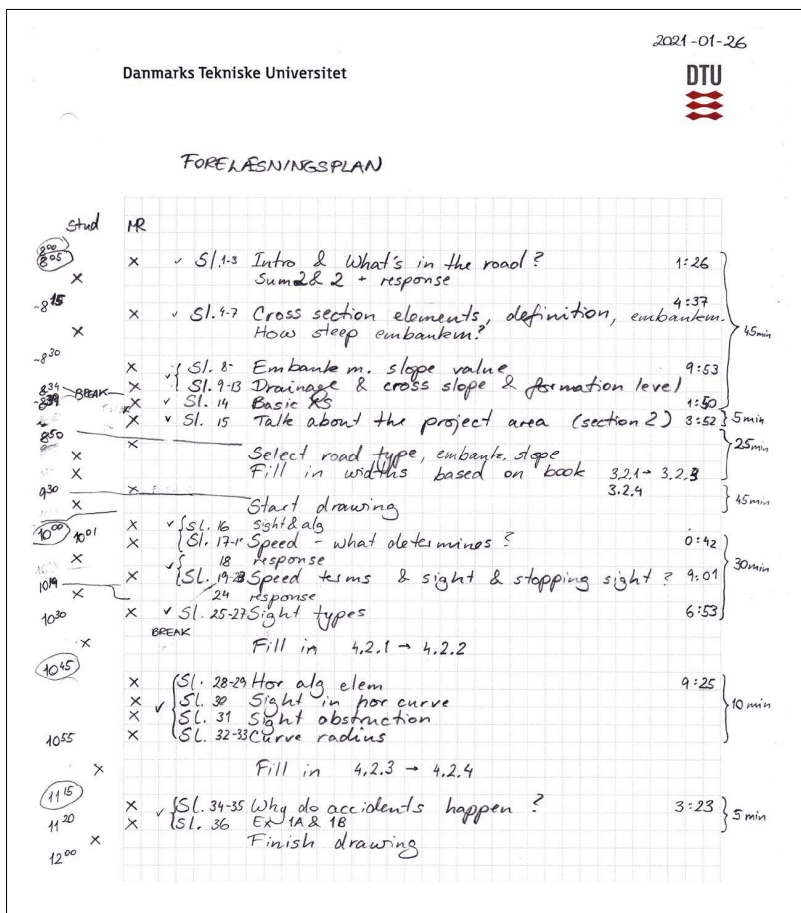 2021-01-26
Danmarks Tekniske Universitet
DTU
FORELÆSNINGSPLAN
Stud MR
8⁰⁰
8⁰⁵ × ✓ Sl.1-3 Intro & What's in the road? 1:26
× Sum 2 & 2 + response
~8¹⁵ 4:37
× ✓ Sl.4-7 Cross section elements, definition, embankm. 45 min
× How steep embankm.?
~8³⁰
× ✓ { Sl. 8- Embankm. slope value 9:53
8³⁴ BREAK × Sl. 9-13 Drainage & cross slope & formation level
× ✓ Sl. 14 Basic XS 1:50
× ✓ Sl. 15 Talk about the project area (section 2) 3:52 } 5 min
8⁵⁰
× Select road type, embank. slope 25 min
× Fill in widths based on book 3.2.1 → 3.2.3
9³⁰ × 3.2.4
× Start drawing 45 min
10⁰⁰ 10⁰¹ × ✓ { Sl. 16 Sight & alg
× Sl. 17- Speed - what determines? 0:42
× ✓ { 18 response 30 min
10¹⁹ × Sl. 19-23 Speed terms & sight & stopping sight? 9:01
× 24 response
10³⁰ × ✓ Sl. 25-27 Sight types 6:53
BREAK
× Fill in 4.2.1 → 4.2.2
10⁴⁵
× { Sl. 28-29 Hor alg elem 9:25
× ✓ Sl. 30 Sight in hor curve 10 min
× Sl. 31 Sight obstruction
10⁵⁵ × Sl. 32-33 Curve radius
× Fill in 4.2.3 → 4.2.4
11¹⁵
× ✓ { Sl. 34-35 Why do accidents happen? 3:23 } 5 min
11²⁰ × Sl. 36 Ex 1A & 1B
× Finish drawing
12⁰⁰